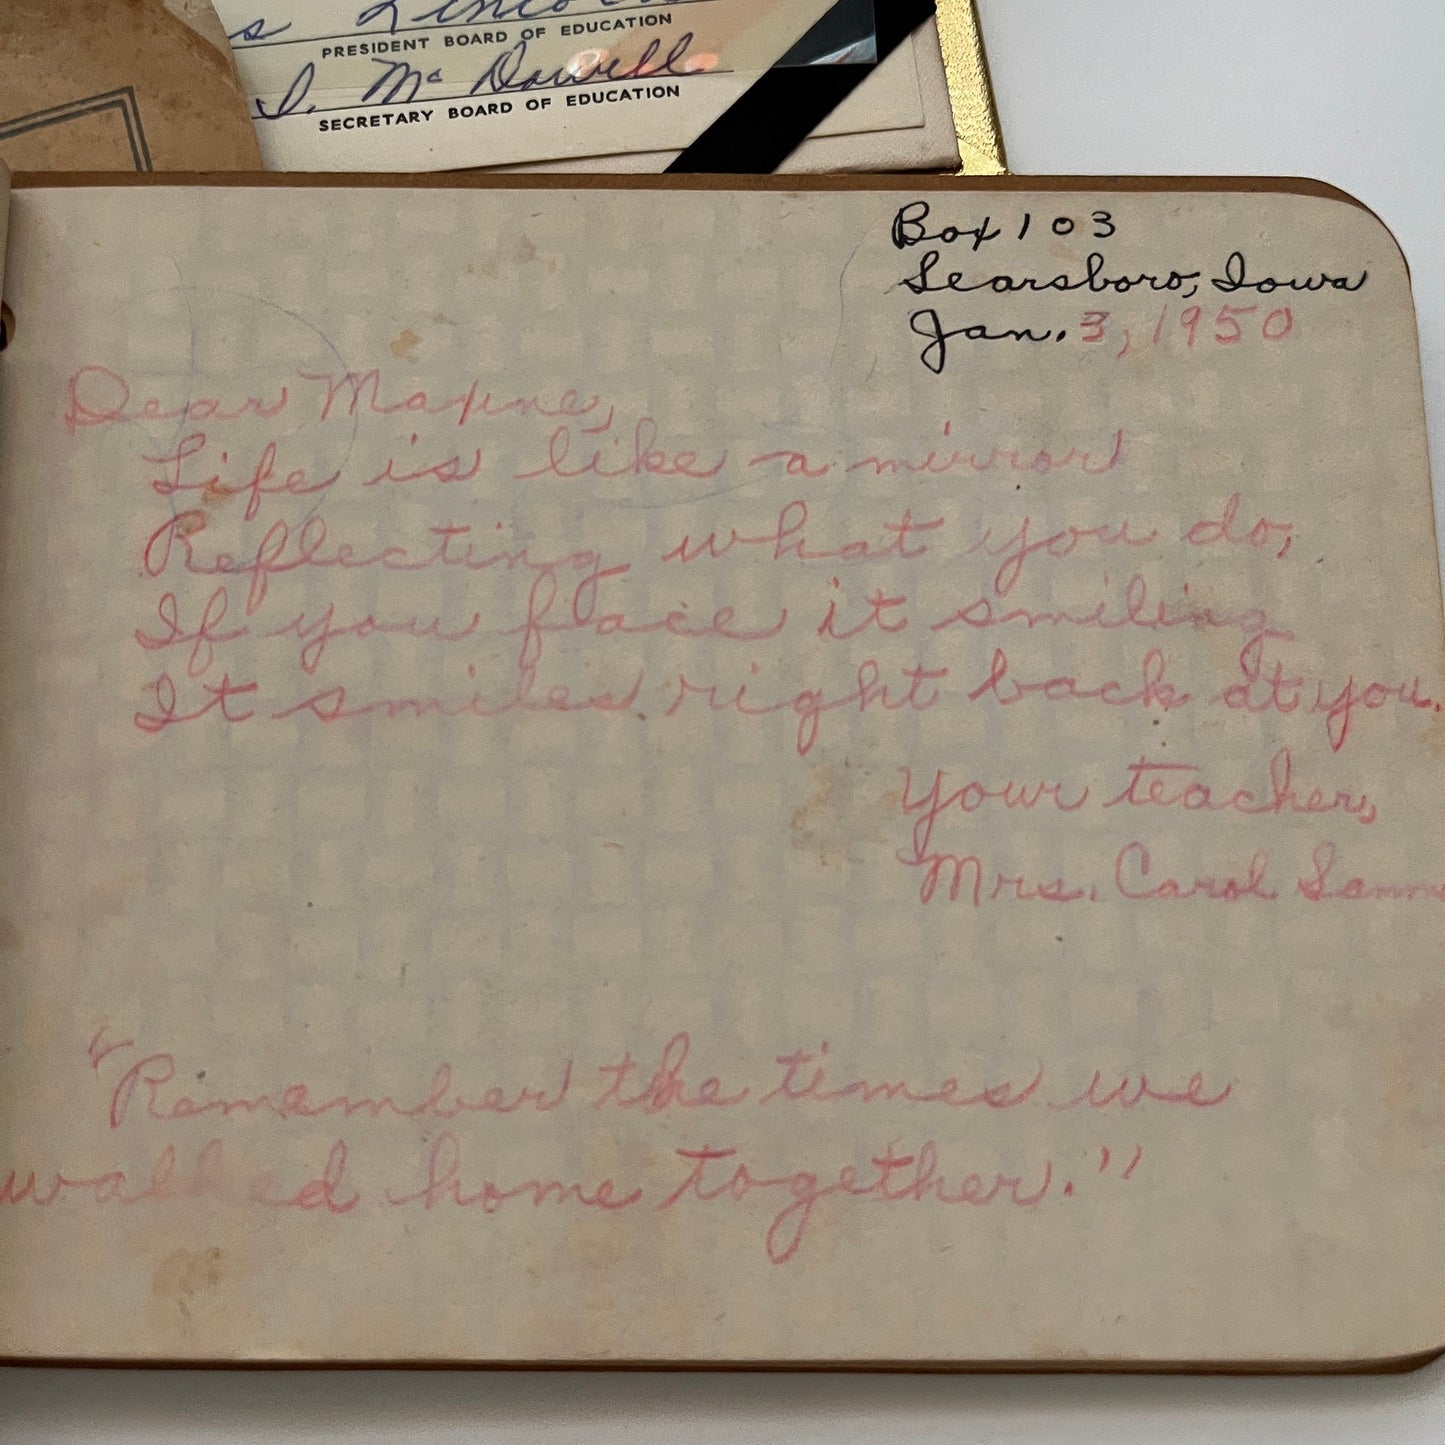 PRESIDENT BOARD OF EDUCATION
I. Mc Dowell
SECRETARY BOARD OF EDUCATION
Box 103
Searsboro, Iowa
Jan. 3, 1950
Dear Maxine,
Life is like a mirror
Reflecting what you do,
If you face it smiling
It smiles right back at you.
Your teacher,
Mrs. Carol
"Remember the times we
walked home together."